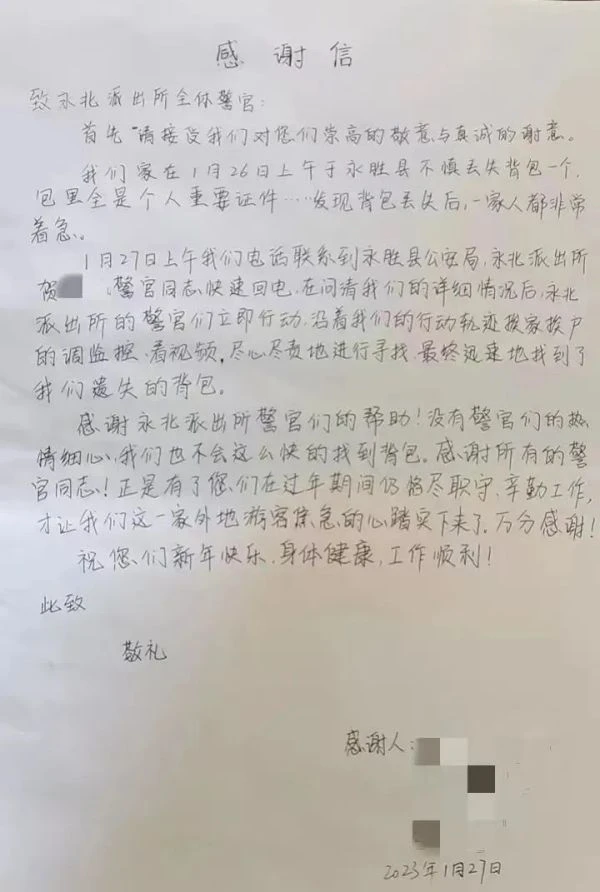 感谢信
致永北派出所全体警官：
首先“请接受我们对您们崇高的敬意与真诚的谢意。
我们家在1月26日上午于永胜县不慎丢失背包一个，
包里全是个人重要证件……发现背包丢失后，一家人都非常
着急。
1月27日上午我们电话联系到永胜县公安局，永北派出所
贺 警官同志快速回电，在问清我们的详细情况后，永北
派出所的警官们立即行动，沿着我们的行动轨迹挨家挨户
的调监控、看视频，尽心尽责地进行寻找，最终迅速地找到了
我们遗失的背包。
感谢永北派出所警官们的帮助！没有警官们的热
情细心，我们也不会这么快的找到背包。感谢所有的警
官同志！正是有了您们在过年期间仍恪尽职守、辛勤工作，
才让我们这一家外地游客焦急的心踏实下来了，万分感谢！
祝您们新年快乐、身体健康，工作顺利！
此致
敬礼
感谢人：
2023年1月27日